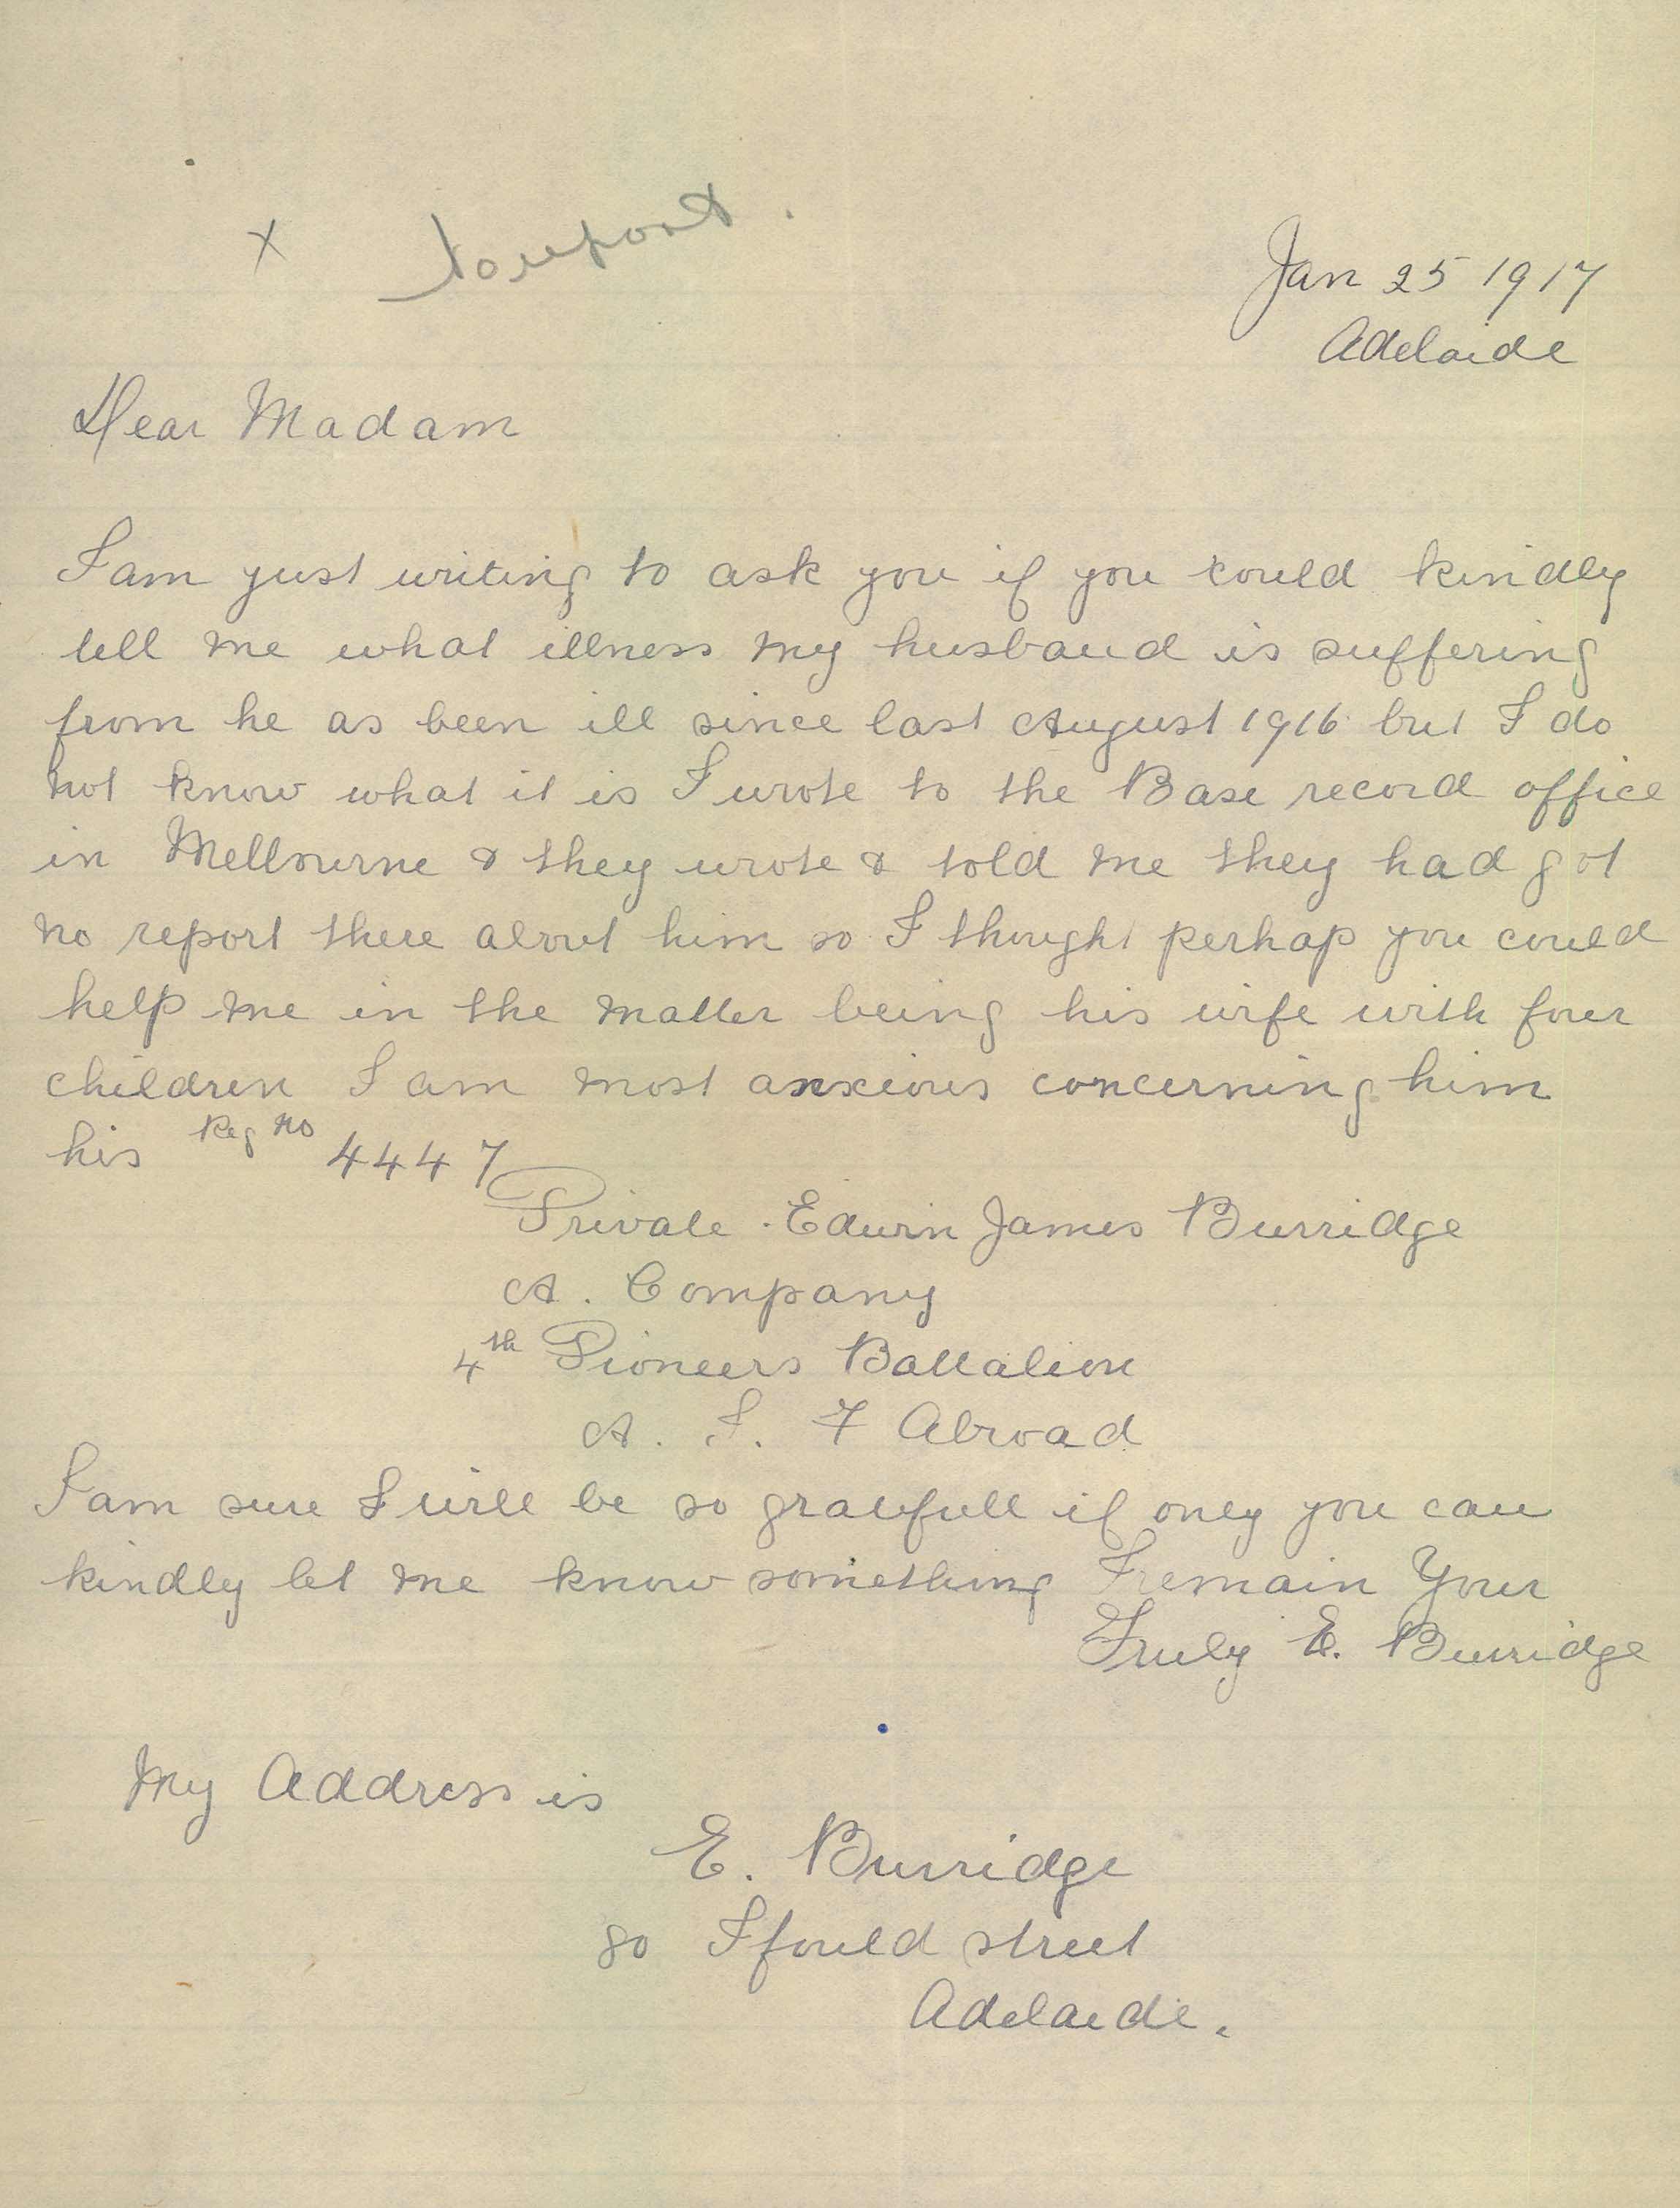 X
Jan 25 1917
Adelaide
Dear Madam
I am just writing to ask you if you could kindly
tell me what illness my husband is suffering
from he as been ill since last August 1916 but I do
not know what it is I wrote to the Base record office
in Mellourne & they wrote & told me they had got
no report there about him so I thought perhap you could
help me in the matter being his wife with four
children I am most anxious concerning him
his Reg no 4447
Private Edwin James Burridge
A. Company
4th Pioneers Battalion
A. I. F Abroad
I am sure I will be so gratefull if only you can
kindly let me know something I remain Your
Truly E. Burridge
My Address is
E. Burridge
80 Ifould street
Adelaide.